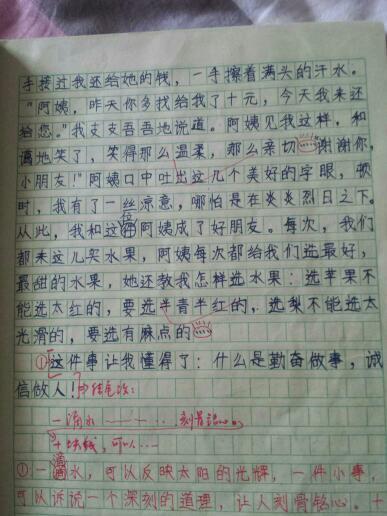 手接过我还给她的钱，一手擦着满头的汗水。
“阿姨，昨天你多找给我了十元，今天我来还
给您。”我支支吾吾地说道。阿姨见我这样，和
蔼地笑了，笑得那么温柔，那么亲切 谢谢你，
小朋友！”阿姨口中吐出这几个美好的字眼，顿
时，我有了一丝凉意，哪怕是在炎炎烈日之下。
从此，我和这位阿姨成了好朋友。每次，我们
都来这儿买水果，阿姨每次都给我们选最好，
最甜的水果，她还教我怎样选水果：选苹果不
能选太红的，要选半青半红的，选梨不能选太
光滑的，要选有麻点的
①这件事让我懂得了：什么是勤奋做事，诚
信做人！
一滴水 —— … 刻骨铭心。
十块钱，可以……
①：一滴水，可以反映太阳的光辉，一件小事，
可以诉说一个深刻的道理，让人刻骨铭心。十